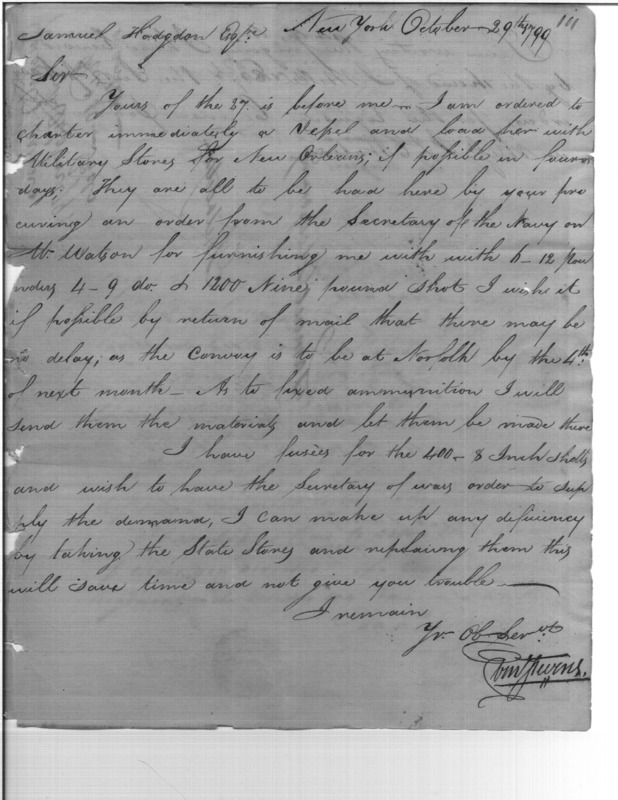 101
Samuel Hodgdon Esqre New York October 29th 1799
Sir
Yours of the 27. is before me — I am ordered to
charter immediately a Vessel and load her with
Military Stores for New Orleans; if possible in four
days; They are all to be had here by your pro
curing an order from the Secretary of the Navy on
Mr. Watson for furnishing me with with 6 - 12 pou
nders 4 - 9 do. & 1200 Nine pound shot I wish it
if possible by return of mail that there may be
no delay; as the Convoy is to be at Norfolk by the 4th.
of next month — As to fixed ammunition I will
send them the materials and let them be made there
I have fusies for the 400 - 8 Inch shells
and wish to have the Secretary of wars order to sup
ply the demand, I can make up any deficiency
by taking the State Stores and replaceing them this
will save time and not give you trouble —
I remain
Yr. Ob Servt.
Eben Stevens.